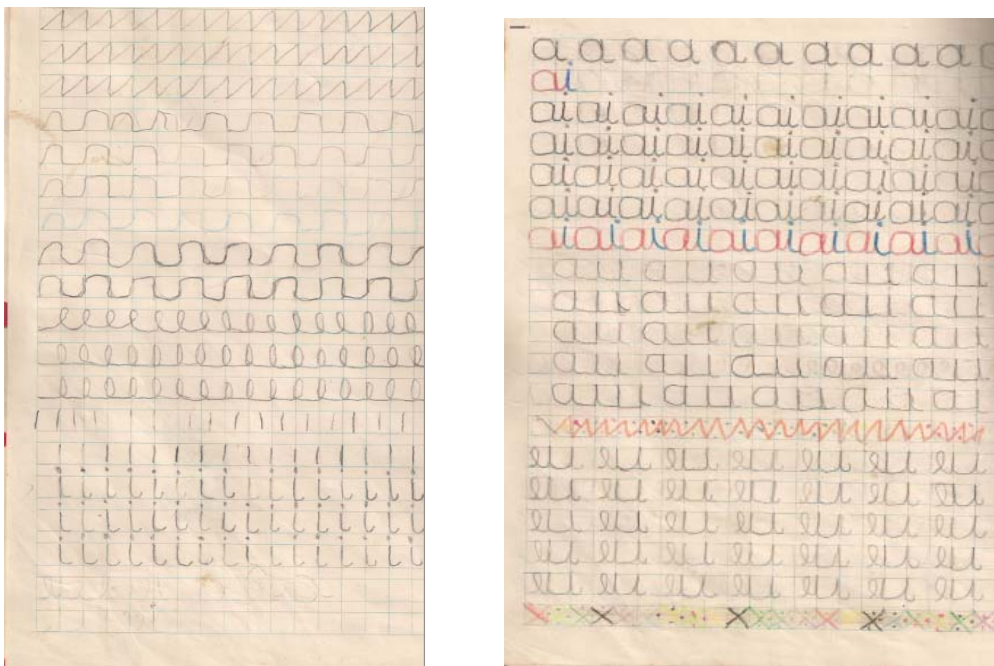 i i i i i i i i i i i i i i i i
i i i i i i i i i i i i i i i i
i i i i i i i i i i i i i i i i
a a a a a a a a a a
ai
ai ai ai ai ai ai ai ai ai ai
ai ai ai ai ai ai ai ai ai ai
ai ai ai ai ai ai ai ai ai ai
ai ai ai ai ai ai ai ai ai ai
ai ai ai ai ai ai ai ai ai ai
au au au au au
au au au au au
au au au au au
au au au au au
au au au au au
eu eu eu eu eu eu eu
eu eu eu eu eu eu eu
eu eu eu eu eu eu eu
eu eu eu eu eu eu eu
eu eu eu eu eu eu eu